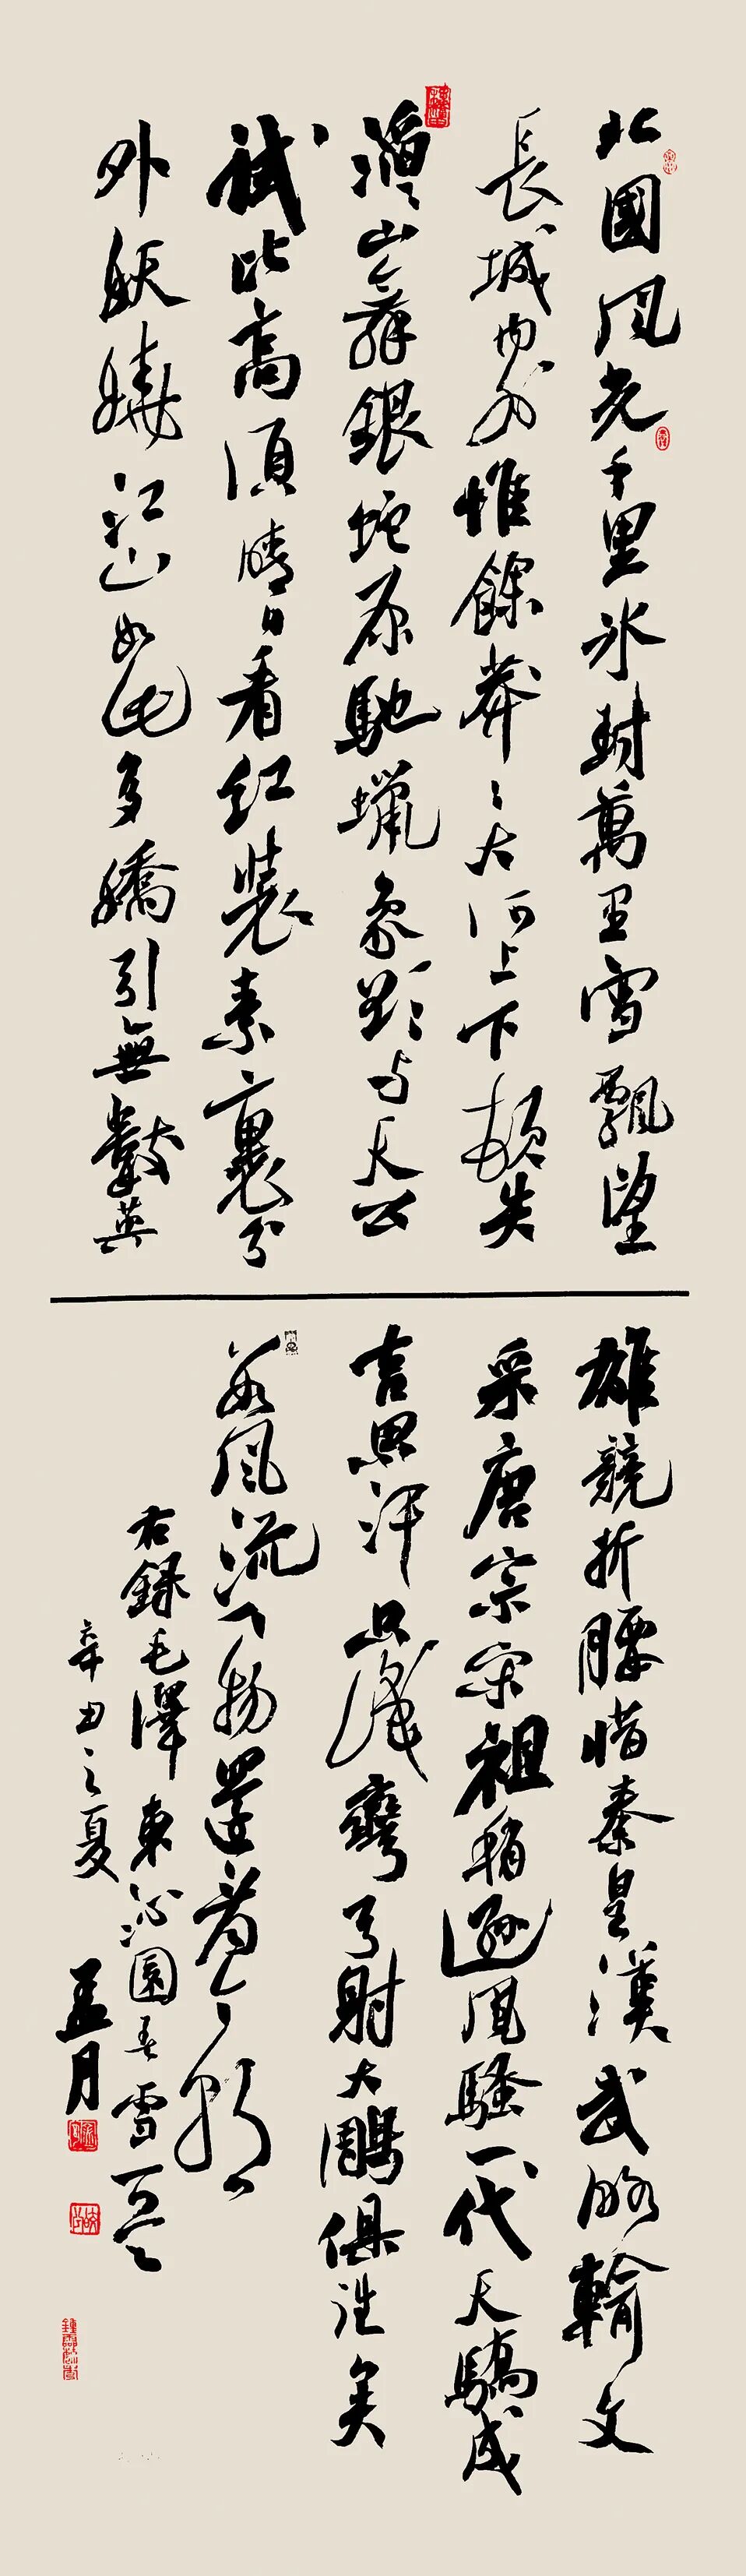 北國風光千里氷封萬里雪飄望
長城內外惟餘莽〻大河上下頓失
滔〻山舞銀蛇原馳蠟象欲与天公
試比高須晴日看紅裝素裹分
外妖嬈江山如此多嬌引無數英
雄競折腰惜秦皇漢武略輸文
采唐宗宋祖稍遜風騷一代天驕成
吉思汗只識彎弓射大鵰俱往矣
數風流人物還看今朝
右録毛澤東沁園春雪
辛丑之夏孟月